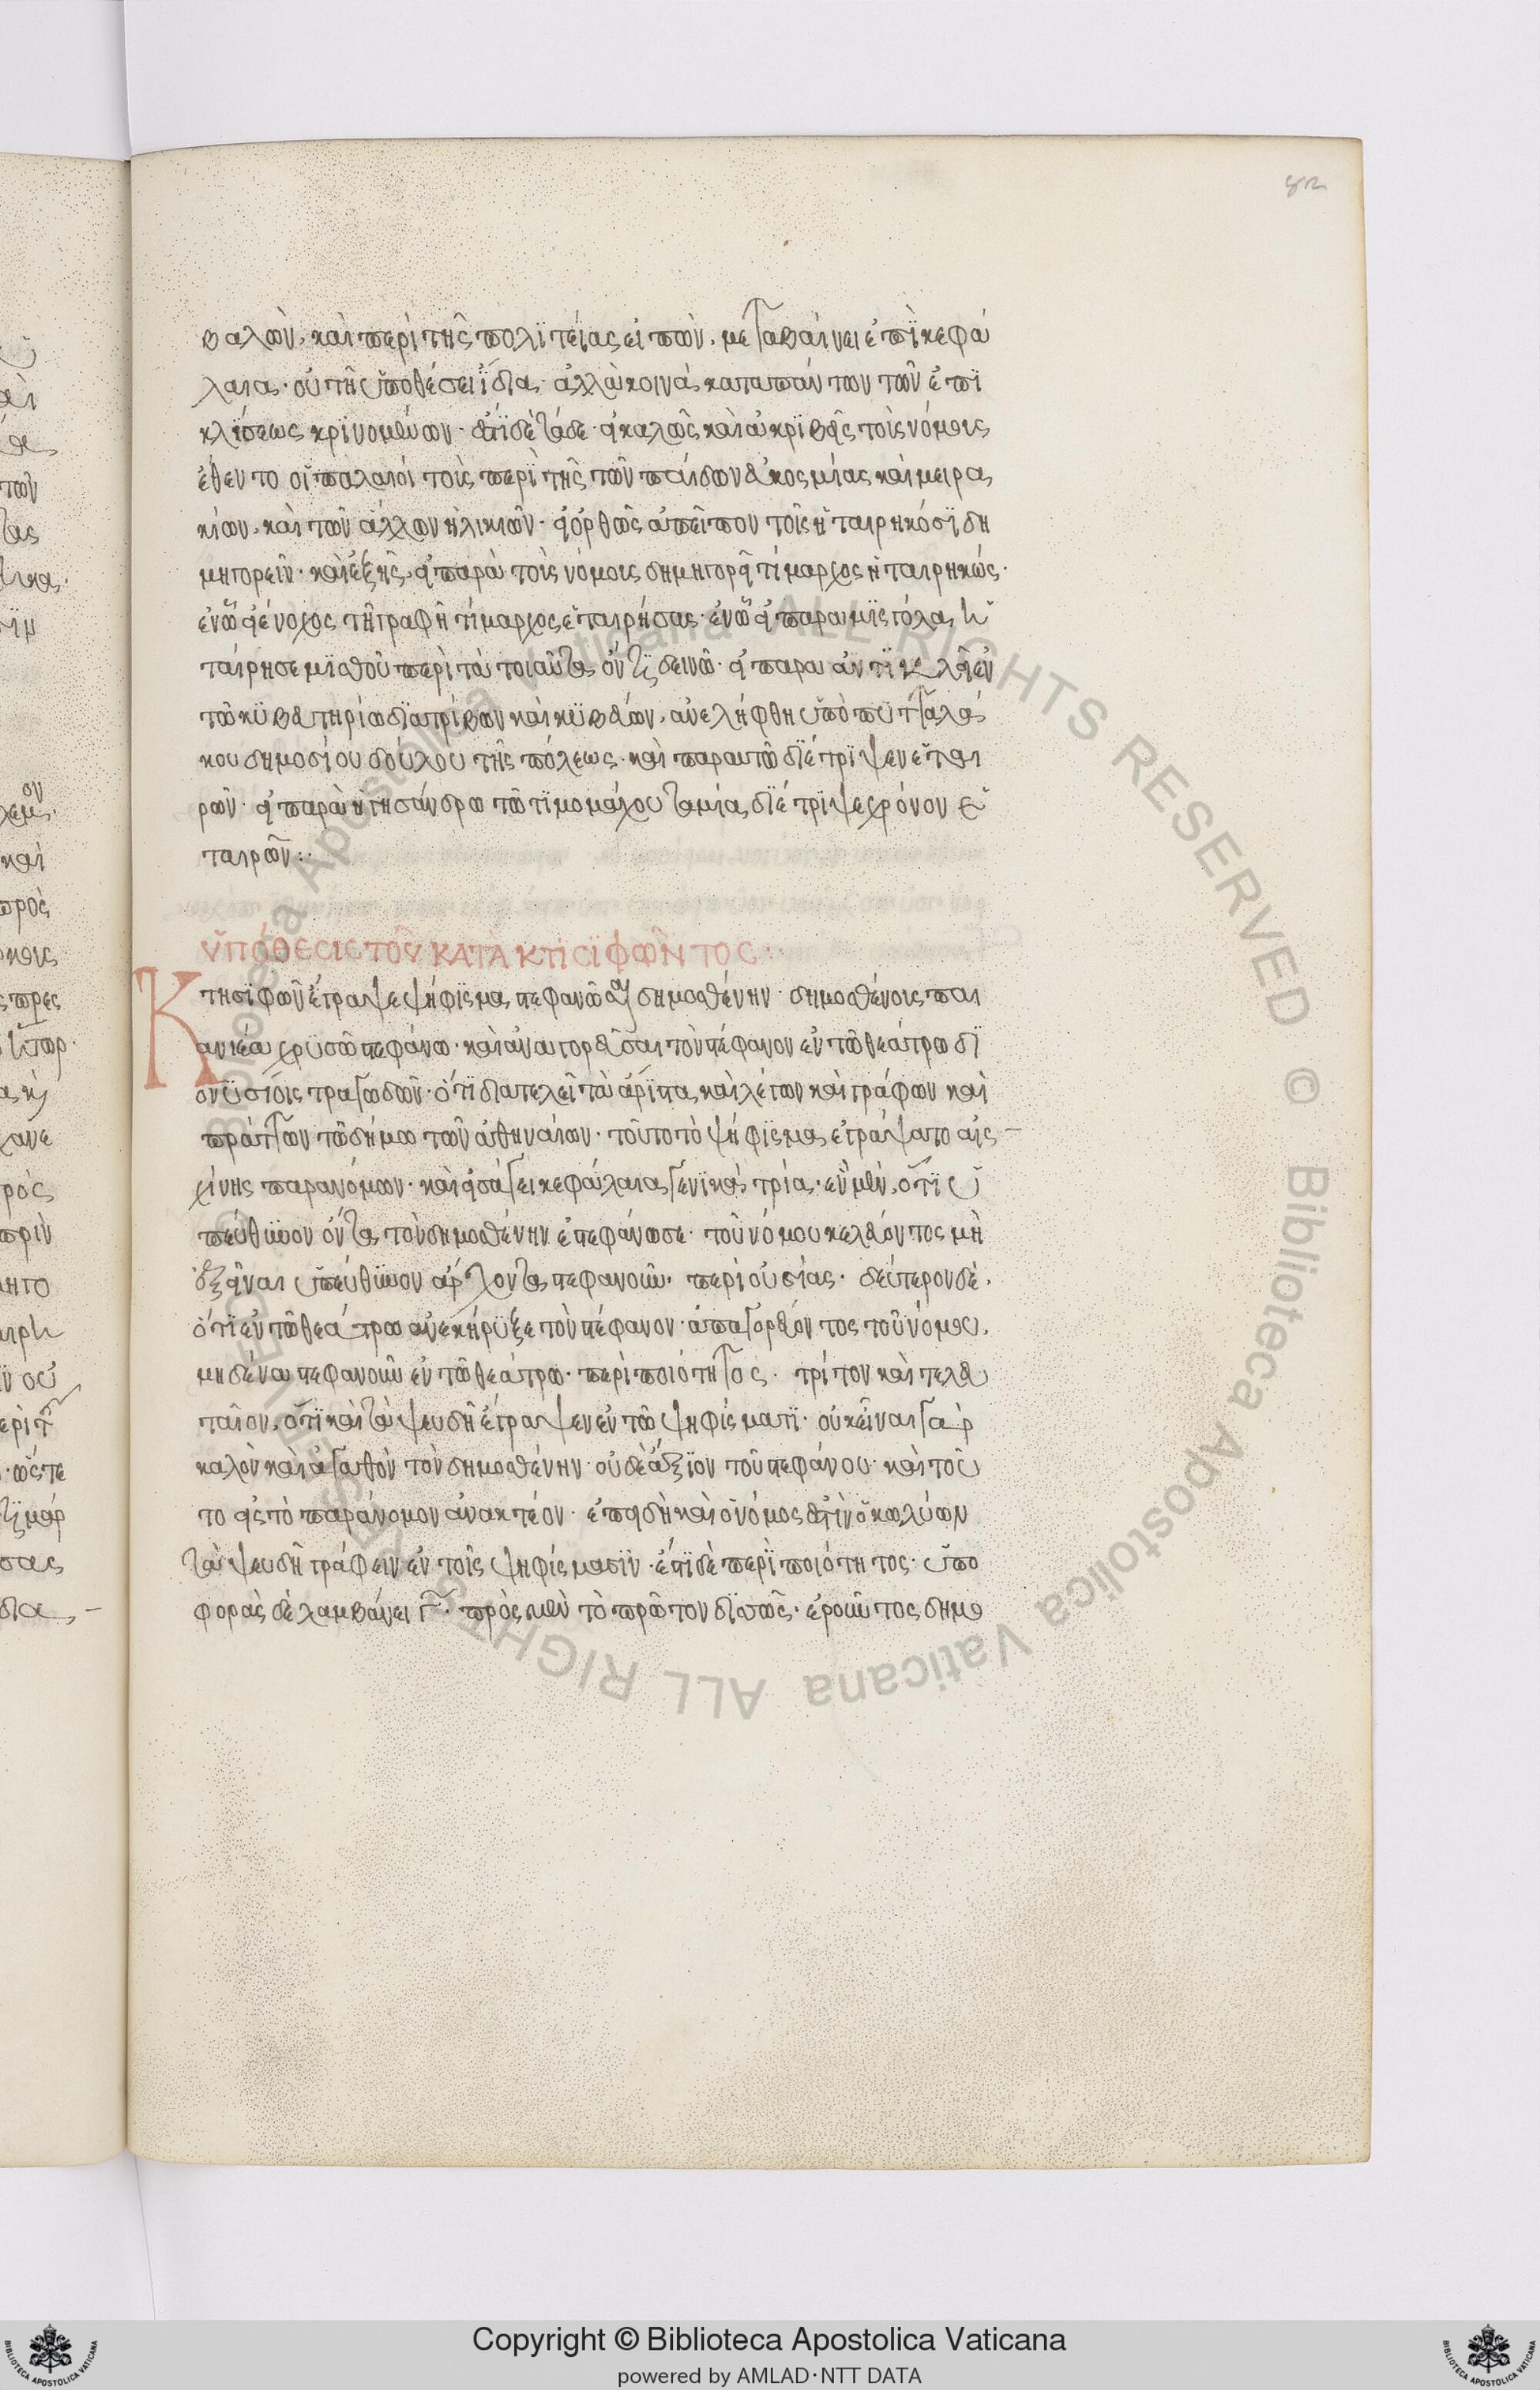 βαλὼν, καὶ περὶ τῆς πολϊτείας εἰπὼν, μεταβαίνει ἐπὶ κεφά
λαια, οὐ τῆ ὑποθέσει ἴδια, ἀλλὰ κοινὰ κατὰ πάντων τῶν ἐπὶ
κλίσεως κρινομένων· ἐστὶ δὲ τάδε· εἰ καλῶς καὶ ἀκριβῶς τοὺς νόμους
ἔθεντο οἱ παλαιοὶ τοὺς περὶ τῆς τῶν παίδων εὐκοσμίας καὶ μειρα
κίων, καὶ τῶν ἄλλων ἡλικιῶν· εἰ ὀρθῶς ἀπεῖπον τοῖς ἡταιρηκόσι δη
μηγορεῖν· καὶ ἑξῆς, εἰ παρὰ τοὺς νόμους δημηγορεῖ τίμαρχος ἡταιρηκώς·
ἐν ᾧ εἰ ἔνοχος τῆ γραφῆ τίμαρχος ἑταιρήσας· ἐν ᾧ εἰ παρὰ μισγόλα ἡ
ταίρησε μισθοῦ περὶ τὰ τοιαῦτα ὄντι δεινῶ· εἰ παρὰ ἀντικλεῖ ἐν
τῶ κυβευτηρίω διατρίβων καὶ κυβεύων, ἀνελήφθη ὑπὸ πιττάλα
κου δημοσίου δούλου τῆς πόλεως· καὶ παρ' αὐτῶ διέτριψεν ἑται
ρῶν· εἰ παρὰ ἡγησάνδρω τῶ τιμομάχου ταμία διέτριψε χρόνον ἑ
ταιρῶν:·
ὙΠΌΘΕΣΙΣ ΤΟΥ͂ ΚΑΤᾺ ΚΤΗΣΙΦΩ͂ΝΤΟΣ·
Κτησιφῶν ἔγραψε ψήφισμα στεφανῶσαι δημοσθένην δημοσθένους παι
ανιέα χρυσῶ στεφάνω· καὶ ἀναγορεῦσαι τὸν στέφανον ἐν τῶ θεάτρω δι
ονυσίοις τραγωδῶν· ὅτι διατελεῖ τὰ ἄριστα καὶ λέγων καὶ γράφων καὶ
πράττων τῶ δήμω τῶν ἀθηναίων· τοῦτο τὸ ψήφισμα ἐγράψατο αἰσ
χίνης παρανόμων· καὶ εἰσάγει κεφάλαια γενικὰ τρία· ἓν μὲν, ὅτι ὑ
πεύθυνον ὄντα τὸν δημοσθένην ἐστεφάνωσε· τοῦ νόμου κελεύοντος μὴ
ἐξεῖναι ὑπεύθυνον ἄρχοντα στεφανοῦν· περὶ οὐσίας· δεύτερον δὲ,
ὅτι ἐν τῶ θεάτρω ἀνεκήρυξε τὸν στέφανον· ἀπαγορεύοντος τοῦ νόμου,
μηδένα στεφανοῦν ἐν τῶ θεάτρω· περὶ ποιότητος· τρίτον καὶ τελευ
ταῖον, ὅτι καὶ τὰ ψευδῆ ἔγραψεν ἐν τῶ ψηφίσματι· οὐκ εἶναι γὰρ
καλὸν καὶ ἀγαθὸν τὸν δημοσθένην· οὐδὲ ἄξιον τοῦ στεφάνου· καὶ τοῦ
το εἰς τὸ παράνομον ἀνακτέον· ἐπειδὴ καὶ ὁ νόμος ἐστὶν ὁ κωλύων
τὰ ψευδῆ γράφειν ἐν τοῖς ψηφίσμασιν· ἔστι δὲ περὶ ποιότητος· ὑπο
φορὰς δὲ λαμβάνει γ· πρὸς μὲν τὸ πρῶτον διττῶς· ἐροῦντος δημο